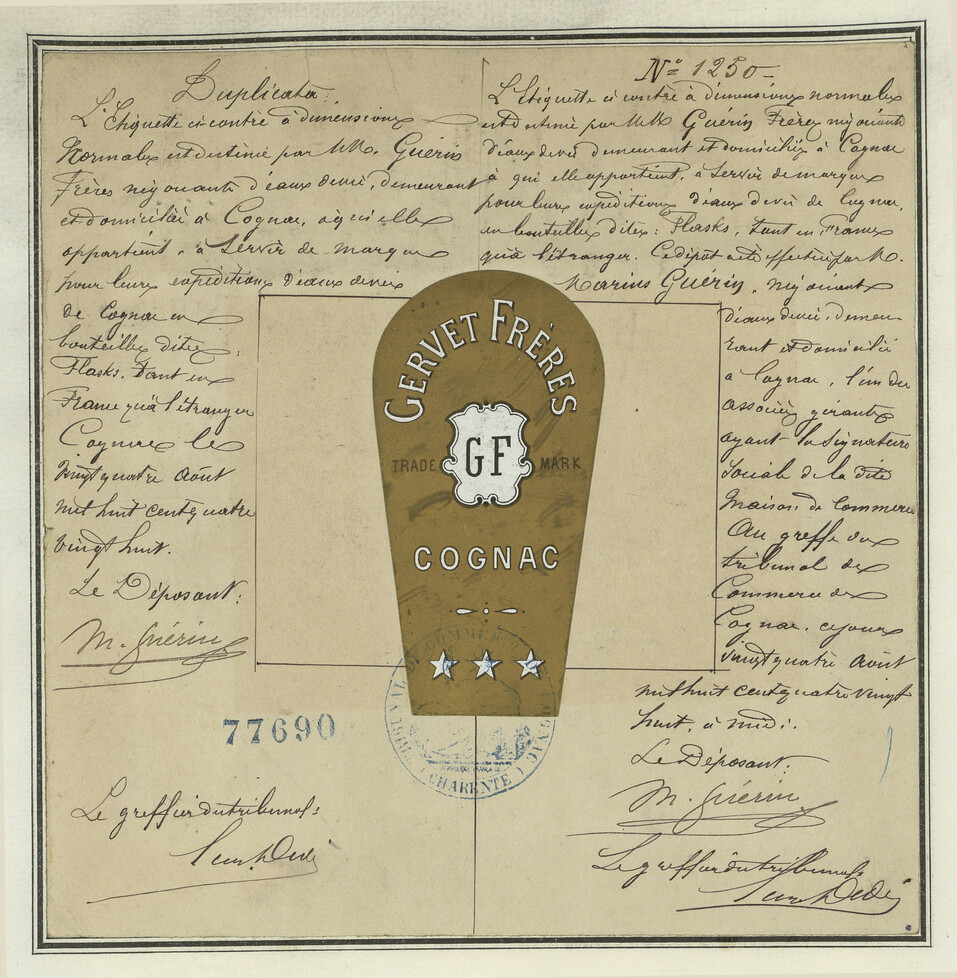 Duplicata:
L'Etiquette ci-contre à dimensions
Normales est destinée par MM. Guérin
Frères négociants d'eaux de vie, demeurant
et domiciliés à Cognac, à qui elle
appartient, à servir de marque
pour leurs expéditions d'eaux de vie
de Cognac en
bouteilles dites:
Flasks. Tant en
France qu'à l'étranger
Cognac le
vingt quatre Août
mil huit cent quatre
vingt huit.
Le Déposant:
M. Guérin
77690
Le greffier du tribunal:
No 1250-
L'Etiquette ci contre à dimensions normales
est destinée par MM Guérin Frères négociants
d'eaux de vie demeurant et domiciliés à Cognac
à qui elle appartient, à servir de marque
pour leurs expéditions d'eaux de vie de Cognac,
en bouteilles dites: Flasks, tant en France
qu'à l'étranger. Ce dépôt a été effectué par M.
Marius Guérin, négociant
d'eaux de vie, demeu-
rant et domicilié
à Cognac, l'un des
associés gérants
ayant la signature
sociale de la dite
Maison de Commerce
Au greffe du
tribunal de
Commerce de
Cognac, ce jour
vingt quatre Août
mil huit cent quatre vingt
huit, à midi.
Le Déposant:
M. Guérin
Le greffier du tribunal:
GERVET FRÈRES
TRADE GF MARK
COGNAC
TRIBUNAL DE COMMERCE COGNAC
(CHARENTE)